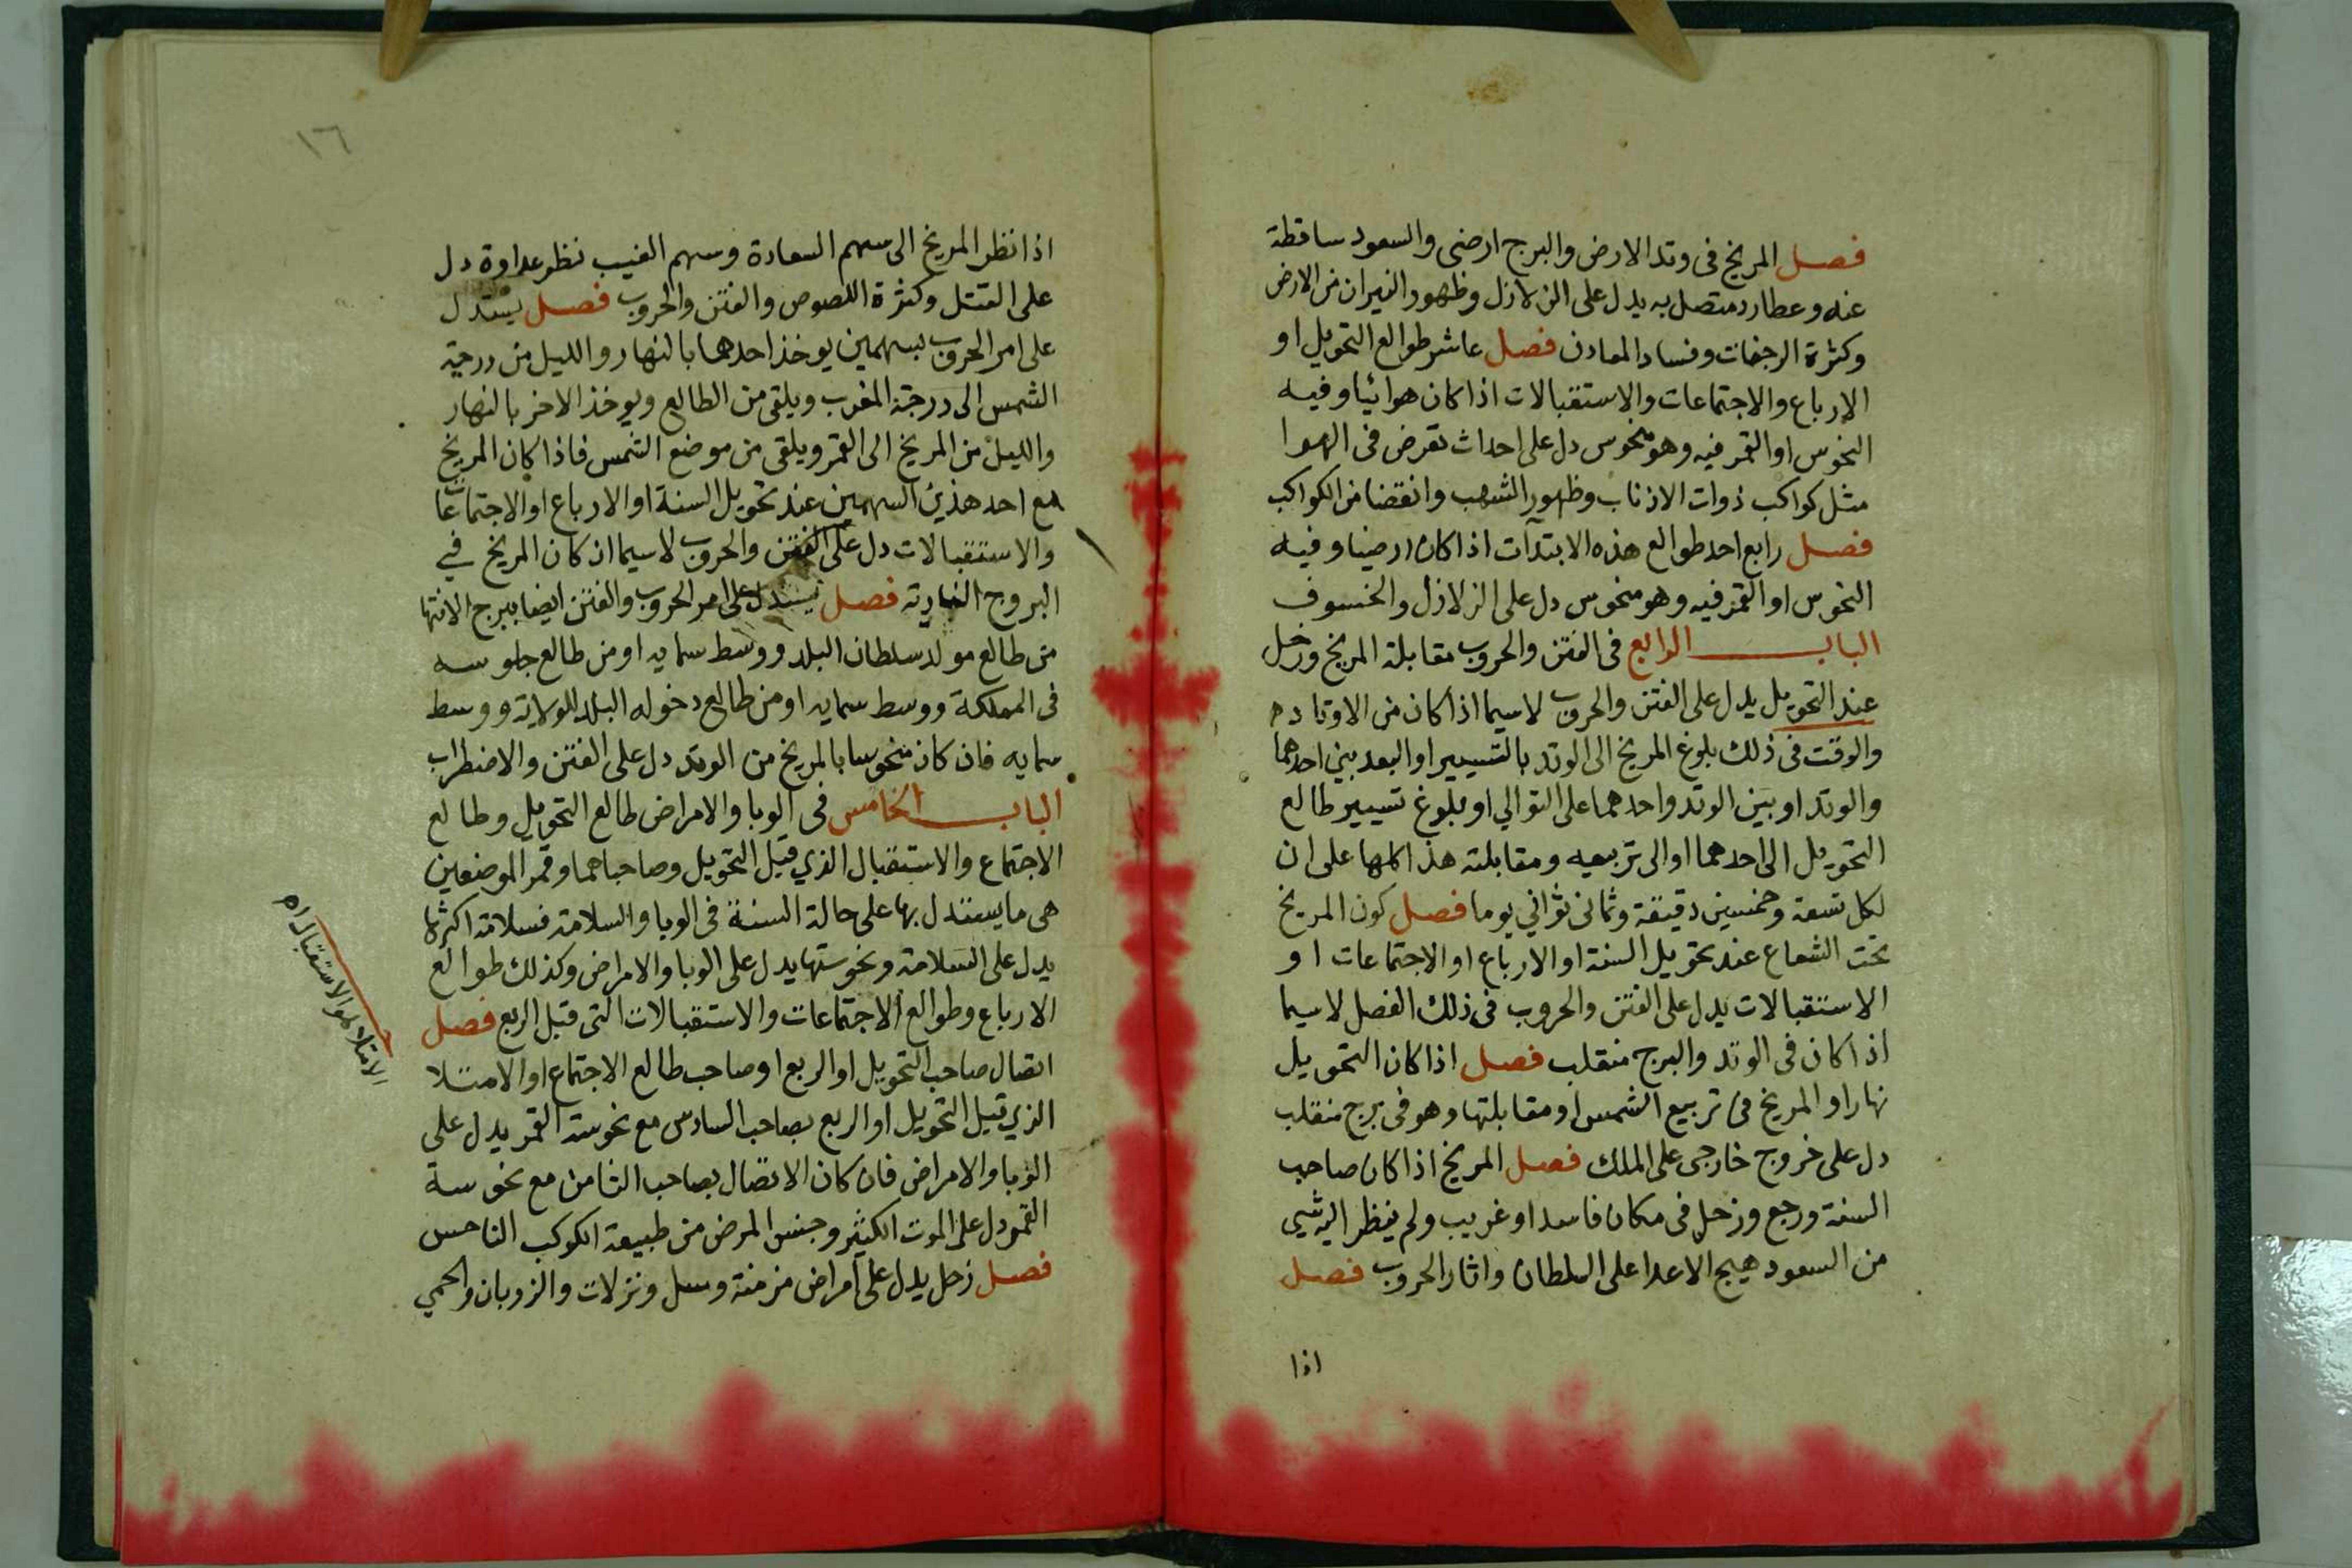 فصل المريخ فى وتد الارض والبرج ارضى والسعود ساقطة
عنه وعطارد متصل به يدل على الزلازل وظهور النيران من الارض
وكثرة الرجفات وفساد المعادن فصل عاشر طوالع التحويل او
الارباع والاجتماعات والاستقبالات اذا كان هوائيا وفيه
النحوس او القمر فيه وهو منحوس دل على احداث تعرض فى الهوا
مثل كواكب ذوات الاذناب وظهور الشهب وانقضاض الكواكب
فصل رابع احد طوالع هذه الابتدآت اذا كان ارضيا وفيه
النحوس او القمر فيه وهو منحوس دل على الزلازل والخسوف
الباب الرابع فى الفتن والحروب مقابلة المريخ وزحل
عند التحويل يدل على الفتن والحروب لاسيما اذا كان من الاوتاد
والوقت فى ذلك بلوغ المريخ الى الوتد بالتسيير او البعد بين احدهما
والوتد او بين الوتد واحدهما على التوالي او بلوغ تسيير طالع
التحويل الى احدهما او الى تربيعه ومقابلته هذا كلها على ان
لكل تسعة وخمسين دقيقة وثمانى ثوانى يوما فصل كون المريخ
تحت الشعاع عند تحويل السنة او الارباع او الاجتماعات او
الاستقبالات يدل على الفتن والحروب فى ذلك الفصل لاسيما
اذا كان فى الوتد والبرج منقلب فصل اذا كان التحويل
نهارا والمريخ فى تربيع الشمس او مقابلتها وهو فى برج منقلب
دل على خروج خارجى على الملك فصل المريخ اذا كان صاحب
السنة ورجع وزحل فى مكان فاسد او غريب ولم ينظر اليه شى
من السعود هيج الاعدا على السلطان واثار الحروب فصل
اذا
١٦
اذا نظر المريخ الى سهم السعادة وسهم الغيب نظر عداوة دل
على القتل وكثرة اللصوص والفتن والحروب فصل يستدل
على امر الحروب بسهمين يوخذ احدهما بالنهار والليل من درجة
الشمس الى درجة المغرب ويلقى من الطالع ويوخذ الاخر بالنهار
والليل من المريخ الى القمر ويلقى من موضع الشمس فاذا كان المريخ
مع احد هذين السهمين عند تحويل السنة او الارباع او الاجتماعات
والاستقبالات دل على الفتن والحروب لاسيما ان كان المريخ في
البروج النارية فصل يستدل على امر الحروب والفتن ايضا ببرج الانتها
من طالع مولد سلطان البلد ووسط سمايه او من طالع جلوسه
فى المملكة ووسط سمايه او من طالع دخوله البلد للولاية ووسط
سمايه فان كان منحوسا بالمريخ من الوتد دل على الفتن والاضطراب
الباب الخامس فى الوبا والامراض طالع التحويل وطالع
الاجتماع والاستقبال الذي قبل التحويل وصاحباهما وقمر الموضعين
هى ما يستدل بها على حالة السنة فى الوبا والسلامة فسلامة اكثرها
يدل على السلامة ونحوستها يدل على الوبا والامراض وكذلك طوالع
الارباع وطوالع الاجتماعات والاستقبالات التى قبل الربع فصل
اتصال صاحب التحويل او الربع او صاحب طالع الاجتماع او الامتلا
الذي قبل التحويل او الربع بصاحب السادس مع نحوسة القمر يدل على
الوبا والامراض فان كان الاتصال بصاحب الثامن مع نحوسة
القمر دل على الموت الكثير وجنس المرض من طبيعة الكوكب الناحس
فصل زحل يدل على امراض مزمنة وسل ونزلات والذوبان والحمي
الامتلا هو الاستقبال